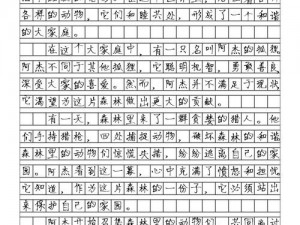 各样的动物，它们和睦共处，形成了一个和谐
的大家庭。
在这个大家庭中，有一只名叫阿杰的狐狸，
阿杰不同于其他狐狸，它聪明机智，勇敢善良，
深受大家的喜爱。然而，阿杰并不满足于现状，
它渴望为这片森林做出更大的贡献。
有一天，森林里来了一群贪婪的猎人。他
们手持猎枪，四处捕捉动物，破坏森林的和谐
森林里的动物们惊慌失措，纷纷逃离自己的家
园。阿杰看到这一幕，心中充满了愤怒和担忧
它知道，作为这片森林的一份子，它必须站出
来保护自己的家园。
阿杰开始召集森林里的动物们，共同商讨